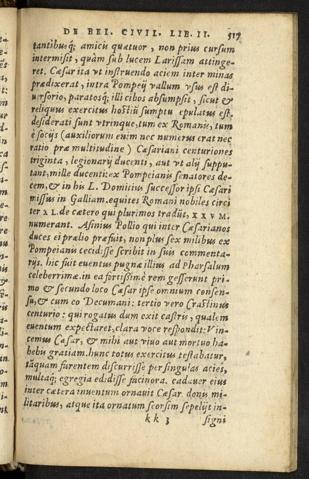 DE BEL. CIVIL. LIB. II. 519
tantibusq; amicis quatuor, non prius cursum
intermisit, quàm sub lucem Larissam attinge-
ret. Cæsar ita vt instruendo aciem inter minas
prædixerat, intra Pompeij vallum vsus est di-
uersorio, paratosq; illi cibos absumpsit, sicut &
reliquus exercitus hostiū sumptu epulatus est,
desiderati sunt vtrinque, tum ex Romanis, tum
è socijs (auxiliorum enim nec numerus erat nec
ratio præ multitudine) Cæsariani centuriones
triginta, legionarij ducenti, aut vt alij suppu-
tant, mille ducenti: ex Pompeianis senatores de-
cem, & in his L. Domitius successor ipsi Cæsari
missus in Galliam. equites Romani nobiles circi
ter XL. de cætero qui plurimos tradūt, XXV M.
numerant. Asinius Pollio qui inter Cæsarianos
duces ei prælio præfuit, non plus sex milibus ex
Pompeianis cecidisse scribit in suis commenta-
rijs. hic fuit euentus pugnæ illius ad Pharsalum
celeberrimæ. in ea fortissimè rem gesserunt pri-
mo & secundo loco Cæsar ipse omnium consen-
su, & cum eo Decumani: tertio vero Crastinus
centurio: qui rogatus dum exit castris, qualem
euentum expectaret, clara voce respondit: Vin-
cemus Cæsar, & mihi aut viuo aut mortuo ha-
bebis gratiam. hunc totus exercitus testabatur,
tāquam furentem discurrisse per singulas acies,
multaq; egregia edidisse facinora. cadauer eius
inter cætera inuentum ornauit Cæsar donis mi-
litaribus, atque ita ornatum seorsim sepelijt in-
kk 3 signi